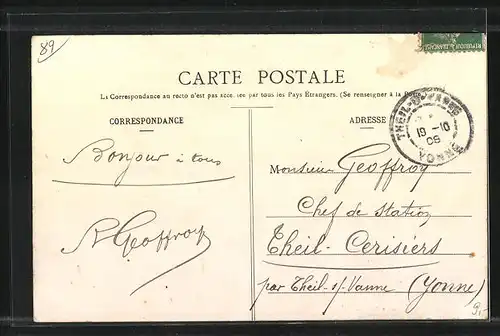 89
REPUBLIQUE FRANÇAISE
CARTE POSTALE
La Correspondance au recto n'est pas acceptée par tous les Pays Étrangers. (Se renseigner à la Poste
CORRESPONDANCE
ADRESSE
THEIL-S-VANNE
19-10
08
YONNE
Bonjour à tous
Geoffroy
Monsieur Geoffroy
Chef de Station
Theil-Cerisiers
par Theil-s/-Vanne (Yonne)